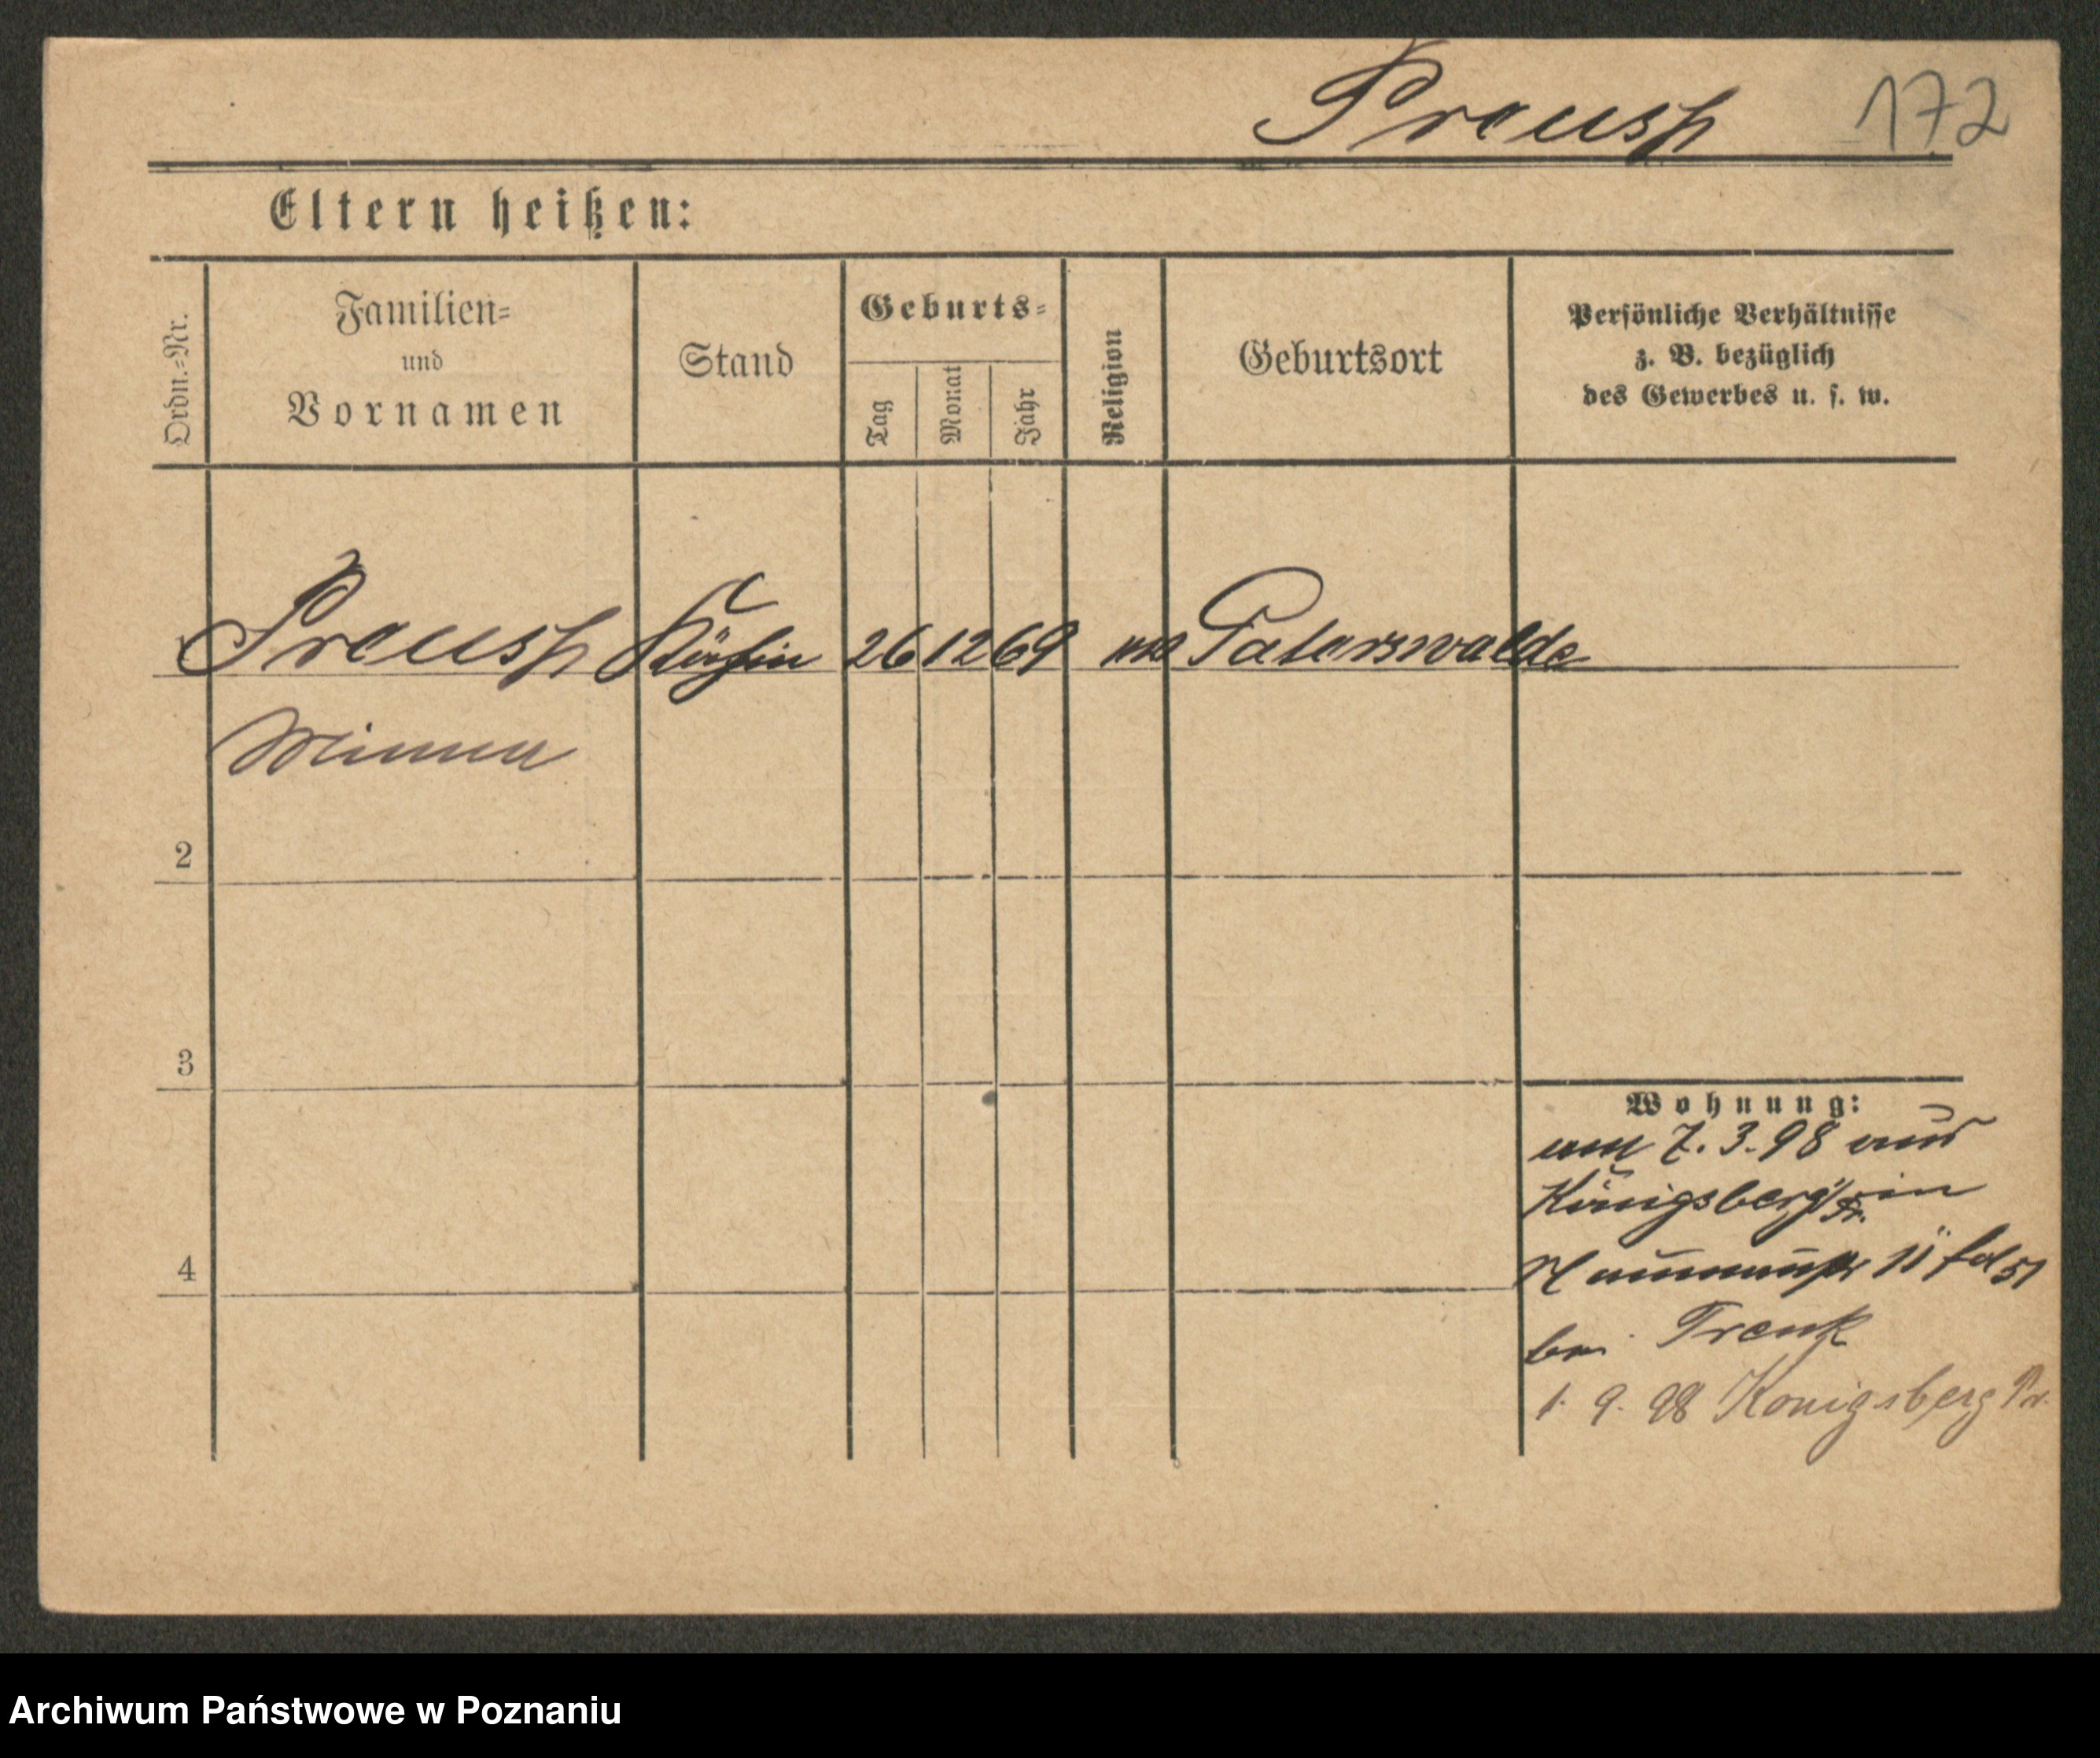 Preuß 172
Eltern heißen:
Ordn.-Nr.
Familien-
und
Vornamen
Stand
Geburts-
Tag
Monat
Jahr
Religion
Geburtsort
Persönliche Verhältnisse
z. B. bezüglich
des Gewerbes u. s. w.
Preuß Köchin 26 12 69 Paterswalde
Minna
2
3
Wohnung:
am 7. 3. 98 aus
Königsberg i/Pr. in
4
Naumannstr 11
bei Trenk
1. 9. 98 Königsberg Pr.
Archiwum Państwowe w Poznaniu